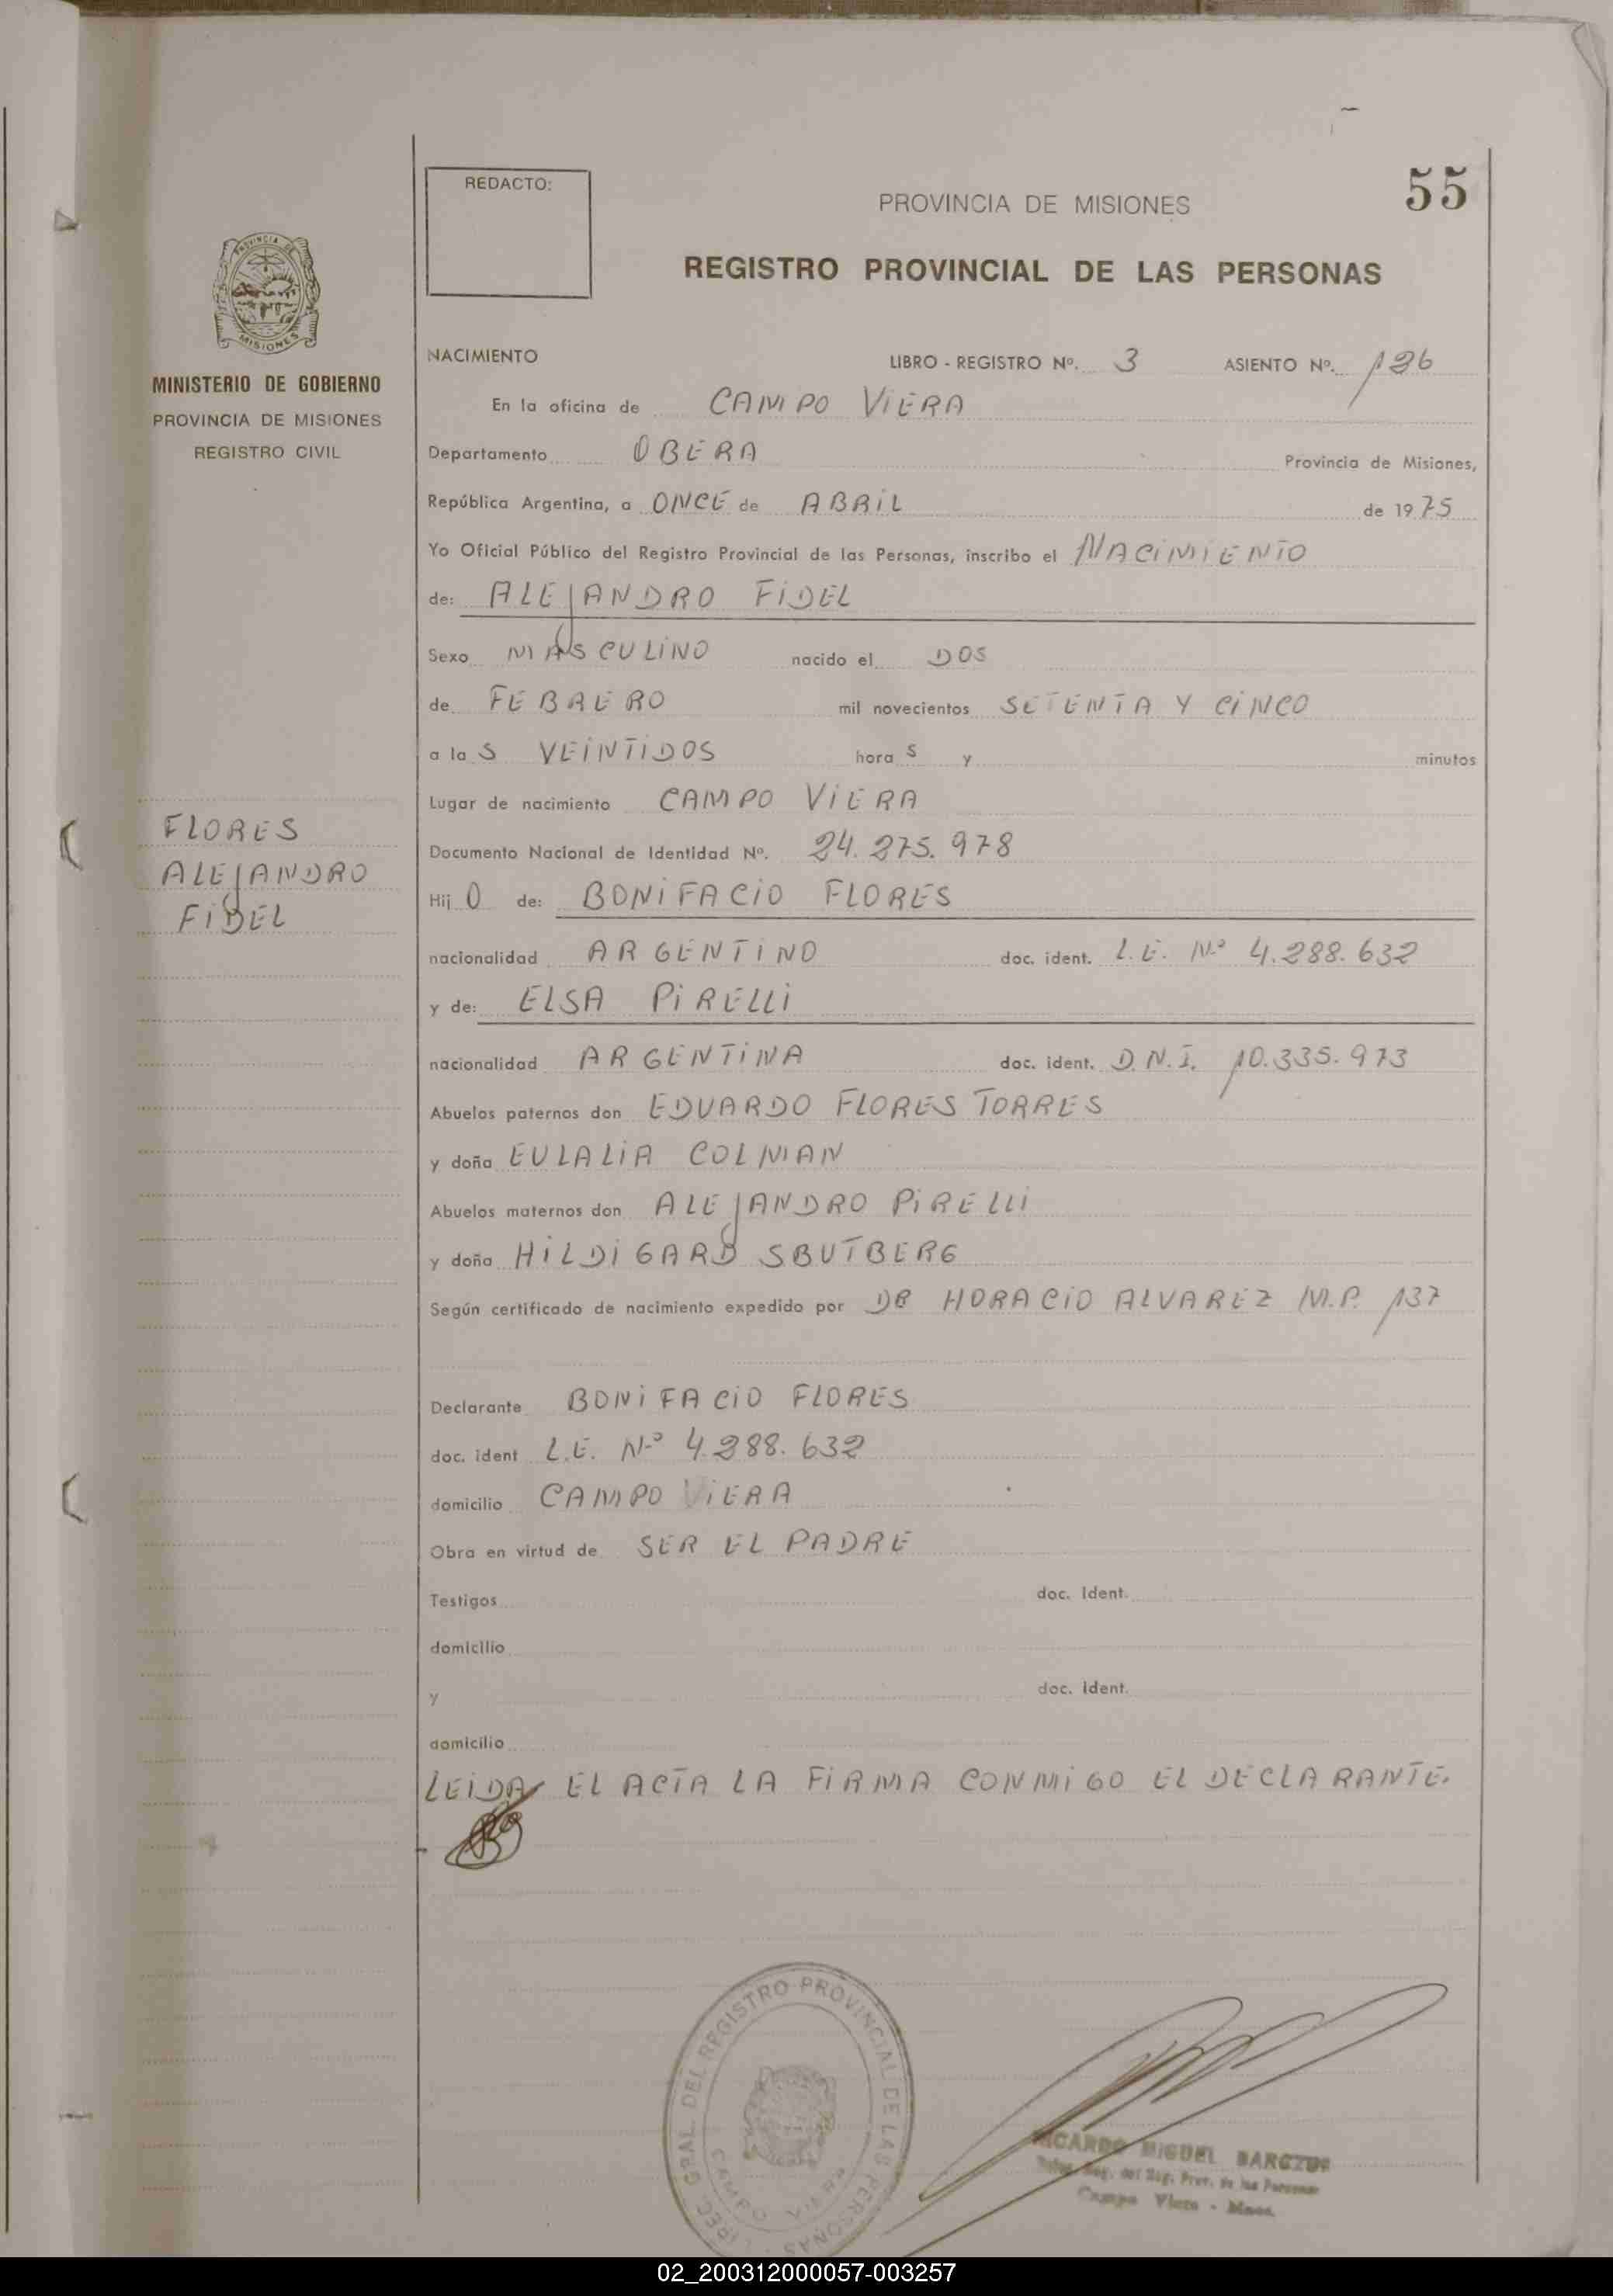 REDACTO:
PROVINCIA DE MISIONES
55
REGISTRO PROVINCIAL DE LAS PERSONAS
PROVINCIA DE
MISIONES
MINISTERIO DE GOBIERNO
PROVINCIA DE MISIONES
REGISTRO CIVIL
FLORES
ALEJANDRO
FIDEL
NACIMIENTO LIBRO - REGISTRO Nº. 3 ASIENTO Nº. 126
En la oficina de CAMPO VIERA
Departamento OBERA Provincia de Misiones,
República Argentina, a ONCE de ABRIL de 1975
Yo Oficial Público del Registro Provincial de las Personas, inscribo el NACIMIENTO
de: ALEJANDRO FIDEL
Sexo MASCULINO nacido el DOS
de FEBRERO mil novecientos SETENTA Y CINCO
a la S VEINTIDOS hora S y minutos
Lugar de nacimiento CAMPO VIERA
Documento Nacional de Identidad Nº. 24.275.978
Hij O de: BONIFACIO FLORES
nacionalidad ARGENTINO doc. ident. L.E. Nº 4.288.632
y de: ELSA PIRELLI
nacionalidad ARGENTINA doc. ident. D.N.I. 10.335.973
Abuelos paternos don EDUARDO FLORES TORRES
y doña EULALIA COLMAN
Abuelos maternos don ALEJANDRO PIRELLI
y doña HILDIGARD SBUTBERG
Según certificado de nacimiento expedido por DR HORACIO ALVAREZ M.P. 137
Declarante BONIFACIO FLORES
doc. ident L.E. Nº 4.288.632
domicilio CAMPO VIERA
Obra en virtud de SER EL PADRE
Testigos doc. ident.
domicilio
y doc. ident.
domicilio
LEIDA EL ACTA LA FIRMA CONMIGO EL DECLARANTE.
GRAL. DEL REGISTRO PROVINCIAL DE LAS PERSONAS
CAMPO VIERA
RICARDO MIGUEL
Reg. del Reg. Prov. de las Personas
Campo Viera - Mnes.
02_200312000057-003257